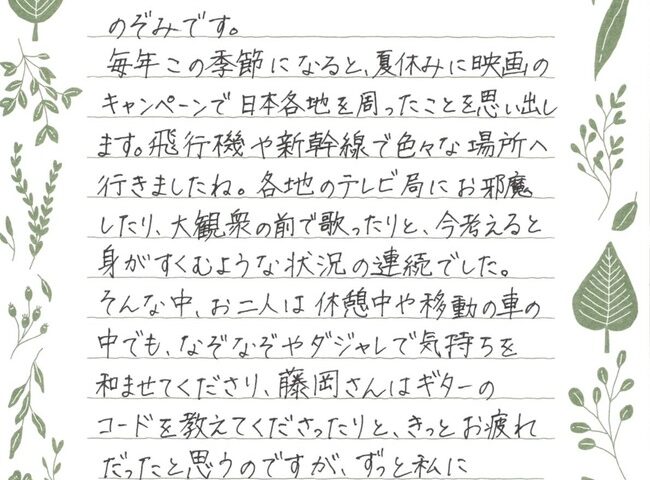 のぞみです。
毎年この季節になると、夏休みに映画の
キャンペーンで日本各地を周ったことを思い出し
ます。飛行機や新幹線で色々な場所へ
行きましたね。各地のテレビ局にお邪魔
したり、大観衆の前で歌ったりと、今考えると
身がすくむような状況の連続でした。
そんな中、お二人は休憩中や移動の車の
中でも、なぞなぞやダジャレで気持ちを
和ませてくださり、藤岡さんはギターの
コードを教えてくださったりと、きっとお疲れ
だったと思うのですが、ずっと私に